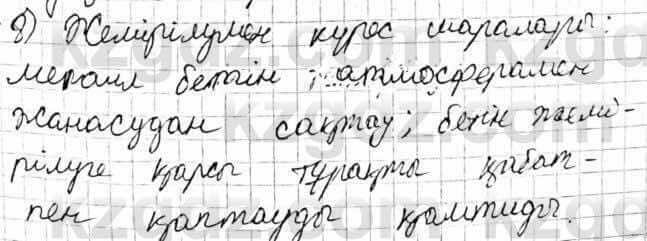 8) Жемірілумен күрес шаралары:
металл бетін ; атмосферамен
жанасудан сақтау; бетін жемі-
рілуге қарсы тұрақты қабат-
пен қаптауды қамтиды.